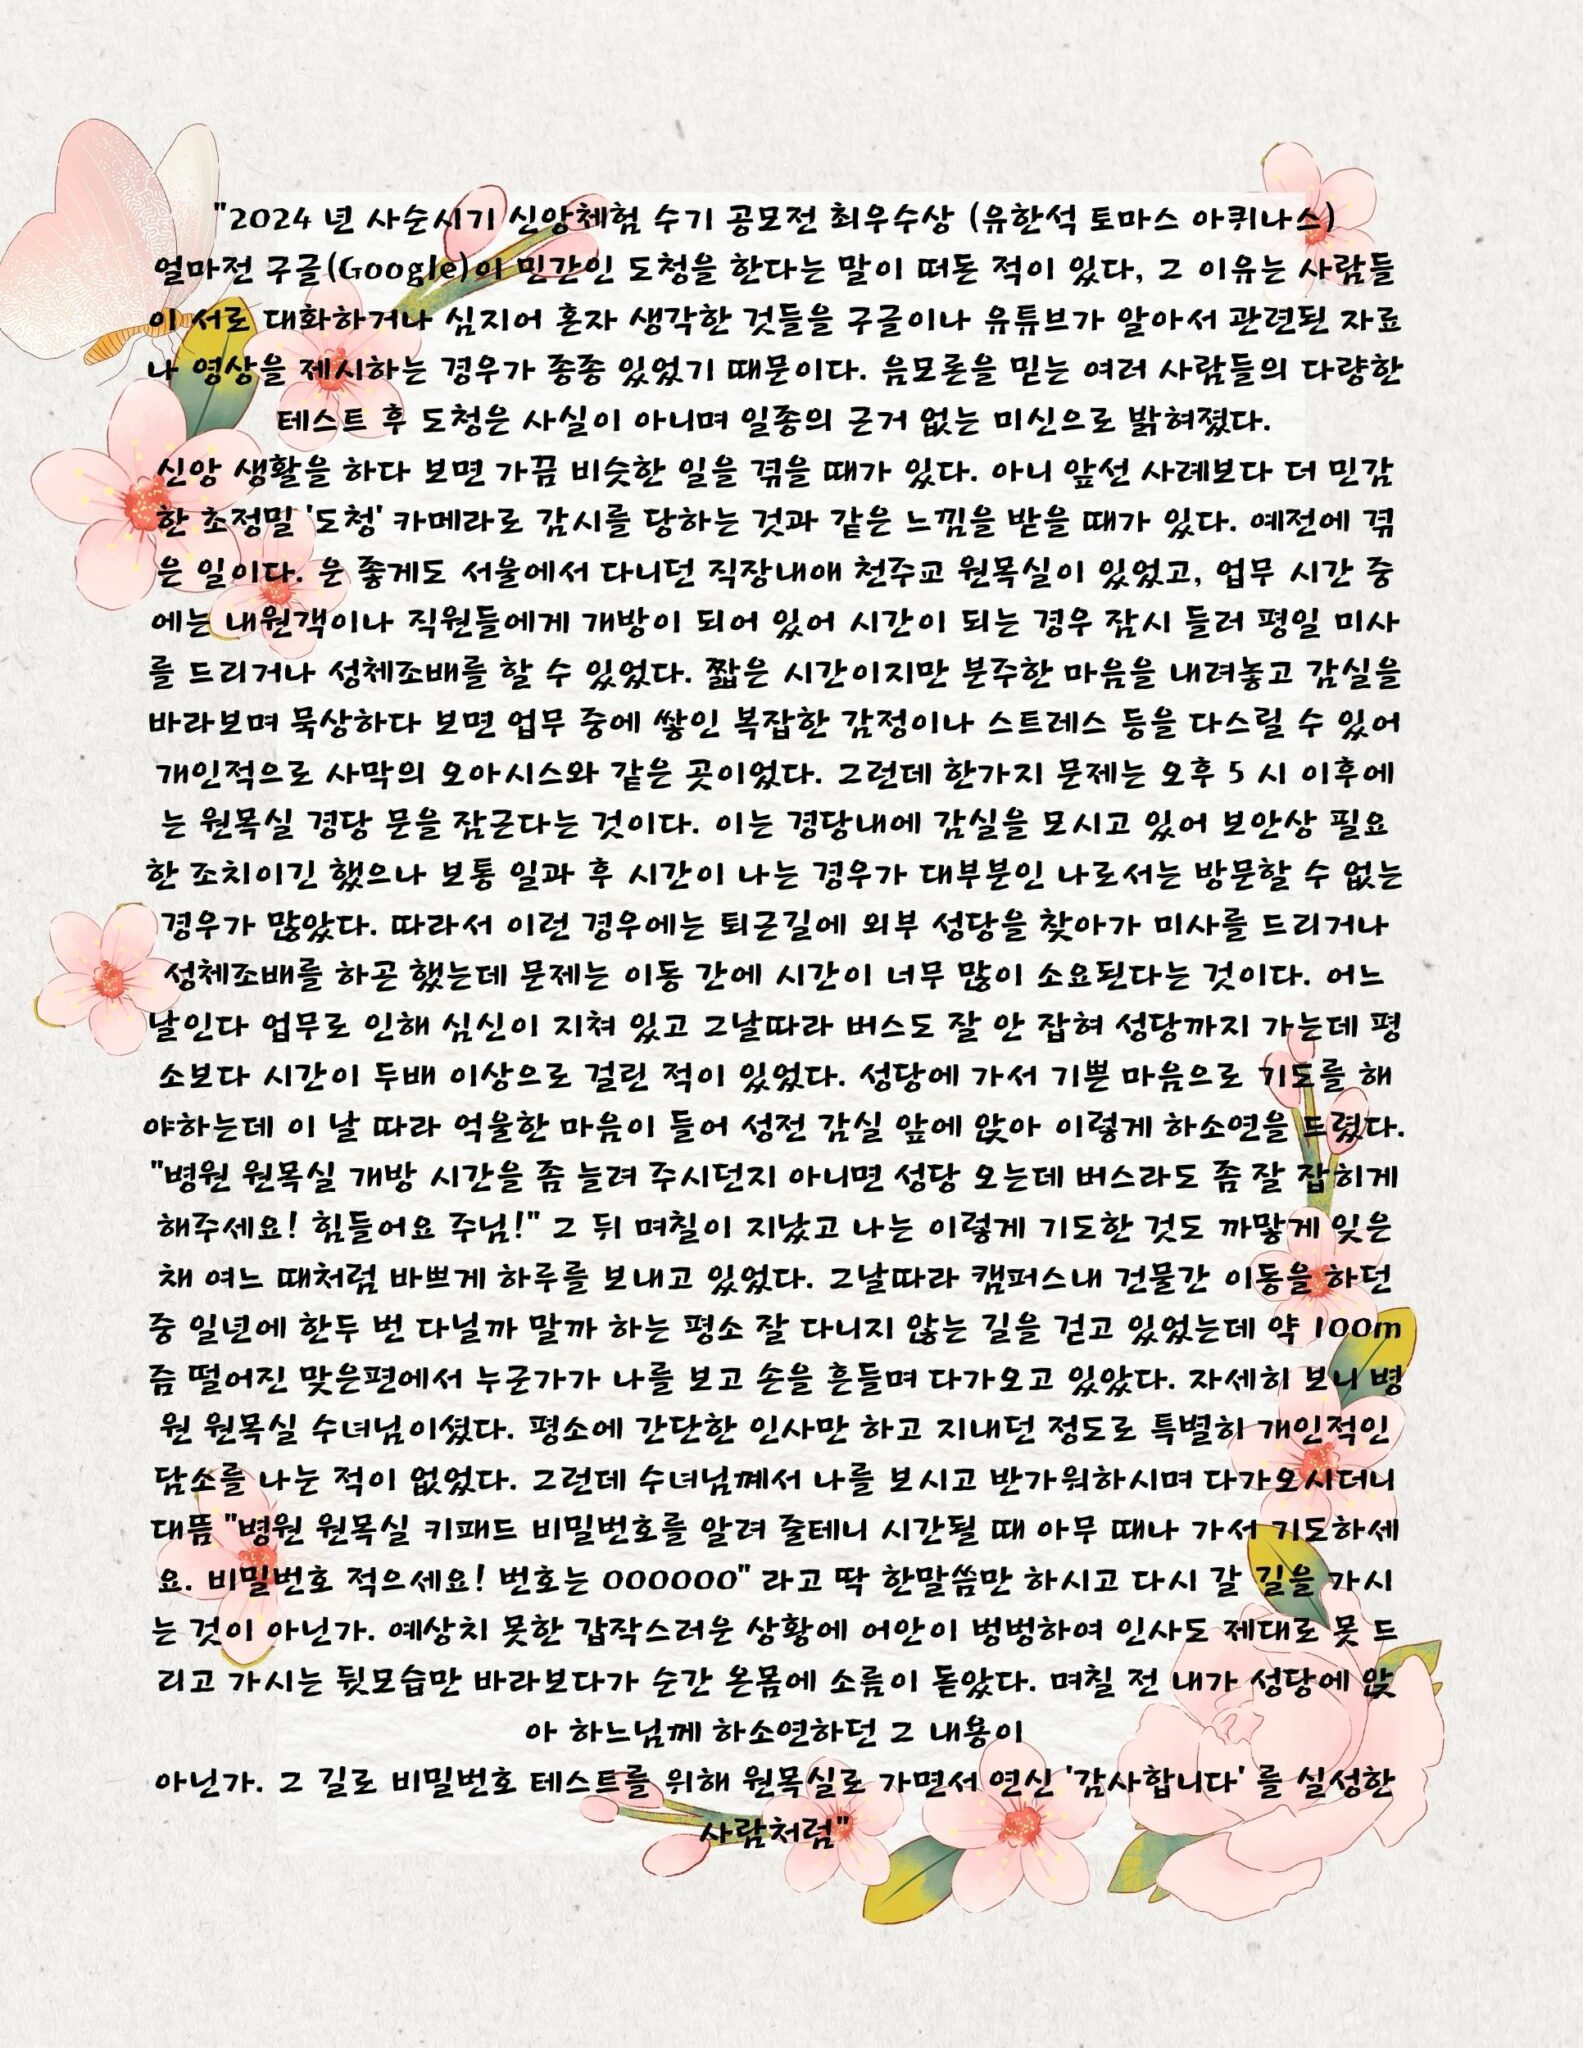 "2024 년 사순시기 신앙체험 수기 공모전 최우수상 (유한석 토마스 아퀴나스)
얼마전 구글(Google)이 민간인 도청을 한다는 말이 떠돈 적이 있다, 그 이유는 사람들
이 서로 대화하거나 심지어 혼자 생각한 것들을 구글이나 유튜브가 알아서 관련된 자료
나 영상을 제시하는 경우가 종종 있었기 때문이다. 음모론을 믿는 여러 사람들의 다량한
테스트 후 도청은 사실이 아니며 일종의 근거 없는 미신으로 밝혀졌다.
신앙 생활을 하다 보면 가끔 비슷한 일을 겪을 때가 있다. 아니 앞선 사례보다 더 민감
한 초정밀 '도청' 카메라로 감시를 당하는 것과 같은 느낌을 받을 때가 있다. 예전에 겪
은 일이다. 운 좋게도 서울에서 다니던 직장내애 천주교 원목실이 있었고, 업무 시간 중
에는 내원객이나 직원들에게 개방이 되어 있어 시간이 되는 경우 잠시 들러 평일 미사
를 드리거나 성체조배를 할 수 있었다. 짧은 시간이지만 분주한 마음을 내려놓고 감실을
바라보며 묵상하다 보면 업무 중에 쌓인 복잡한 감정이나 스트레스 등을 다스릴 수 있어
개인적으로 사막의 오아시스와 같은 곳이었다. 그런데 한가지 문제는 오후 5 시 이후에
는 원목실 경당 문을 잠근다는 것이다. 이는 경당내에 감실을 모시고 있어 보안상 필요
한 조치이긴 했으나 보통 일과 후 시간이 나는 경우가 대부분인 나로서는 방문할 수 없는
경우가 많았다. 따라서 이런 경우에는 퇴근길에 외부 성당을 찾아가 미사를 드리거나
성체조배를 하곤 했는데 문제는 이동 간에 시간이 너무 많이 소요된다는 것이다. 어느
날인다 업무로 인해 심신이 지쳐 있고 그날따라 버스도 잘 안 잡혀 성당까지 가는데 평
소보다 시간이 두배 이상으로 걸린 적이 있었다. 성당에 가서 기쁜 마음으로 기도를 해
야하는데 이 날 따라 억울한 마음이 들어 성전 감실 앞에 앉아 이렇게 하소연을 드렸다.
"병원 원목실 개방 시간을 좀 늘려 주시던지 아니면 성당 오는데 버스라도 좀 잘 잡히게
해주세요! 힘들어요 주님!" 그 뒤 며칠이 지났고 나는 이렇게 기도한 것도 까맣게 잊은
채 여느 때처럼 바쁘게 하루를 보내고 있었다. 그날따라 캠퍼스내 건물간 이동을 하던
중 일년에 한두 번 다닐까 말까 하는 평소 잘 다니지 않는 길을 걷고 있었는데 약 100m
즘 떨어진 맞은편에서 누군가가 나를 보고 손을 흔들며 다가오고 있았다. 자세히 보니 병
원 원목실 수녀님이셨다. 평소에 간단한 인사만 하고 지내던 정도로 특별히 개인적인
담소를 나눈 적이 없었다. 그런데 수녀님께서 나를 보시고 반가워하시며 다가오시더니
대뜸 "병원 원목실 키패드 비밀번호를 알려 줄테니 시간될 때 아무 때나 가서 기도하세
요. 비밀번호 적으세요! 번호는 000000" 라고 딱 한말씀만 하시고 다시 갈 길을 가시
는 것이 아닌가. 예상치 못한 갑작스러운 상황에 어안이 벙벙하여 인사도 제대로 못 드
리고 가시는 뒷모습만 바라보다가 순간 온몸에 소름이 돋았다. 며칠 전 내가 성당에 앉
아 하느님께 하소연하던 그 내용이
아닌가. 그 길로 비밀번호 테스트를 위해 원목실로 가면서 연신 '감사합니다' 를 실성한
사람처럼"